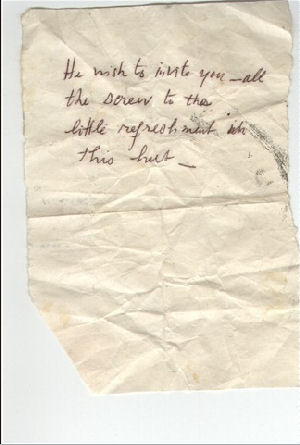 He wish to invite you – all
the screw to the
little refreshment in
this hut –